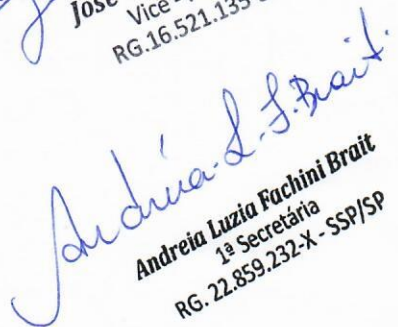 José
Vice
RG.16.521.135
Andréia L. F. Brait.
Andreia Luzia Fachini Brait
1ª Secretária
RG. 22.859.232-X - SSP/SP